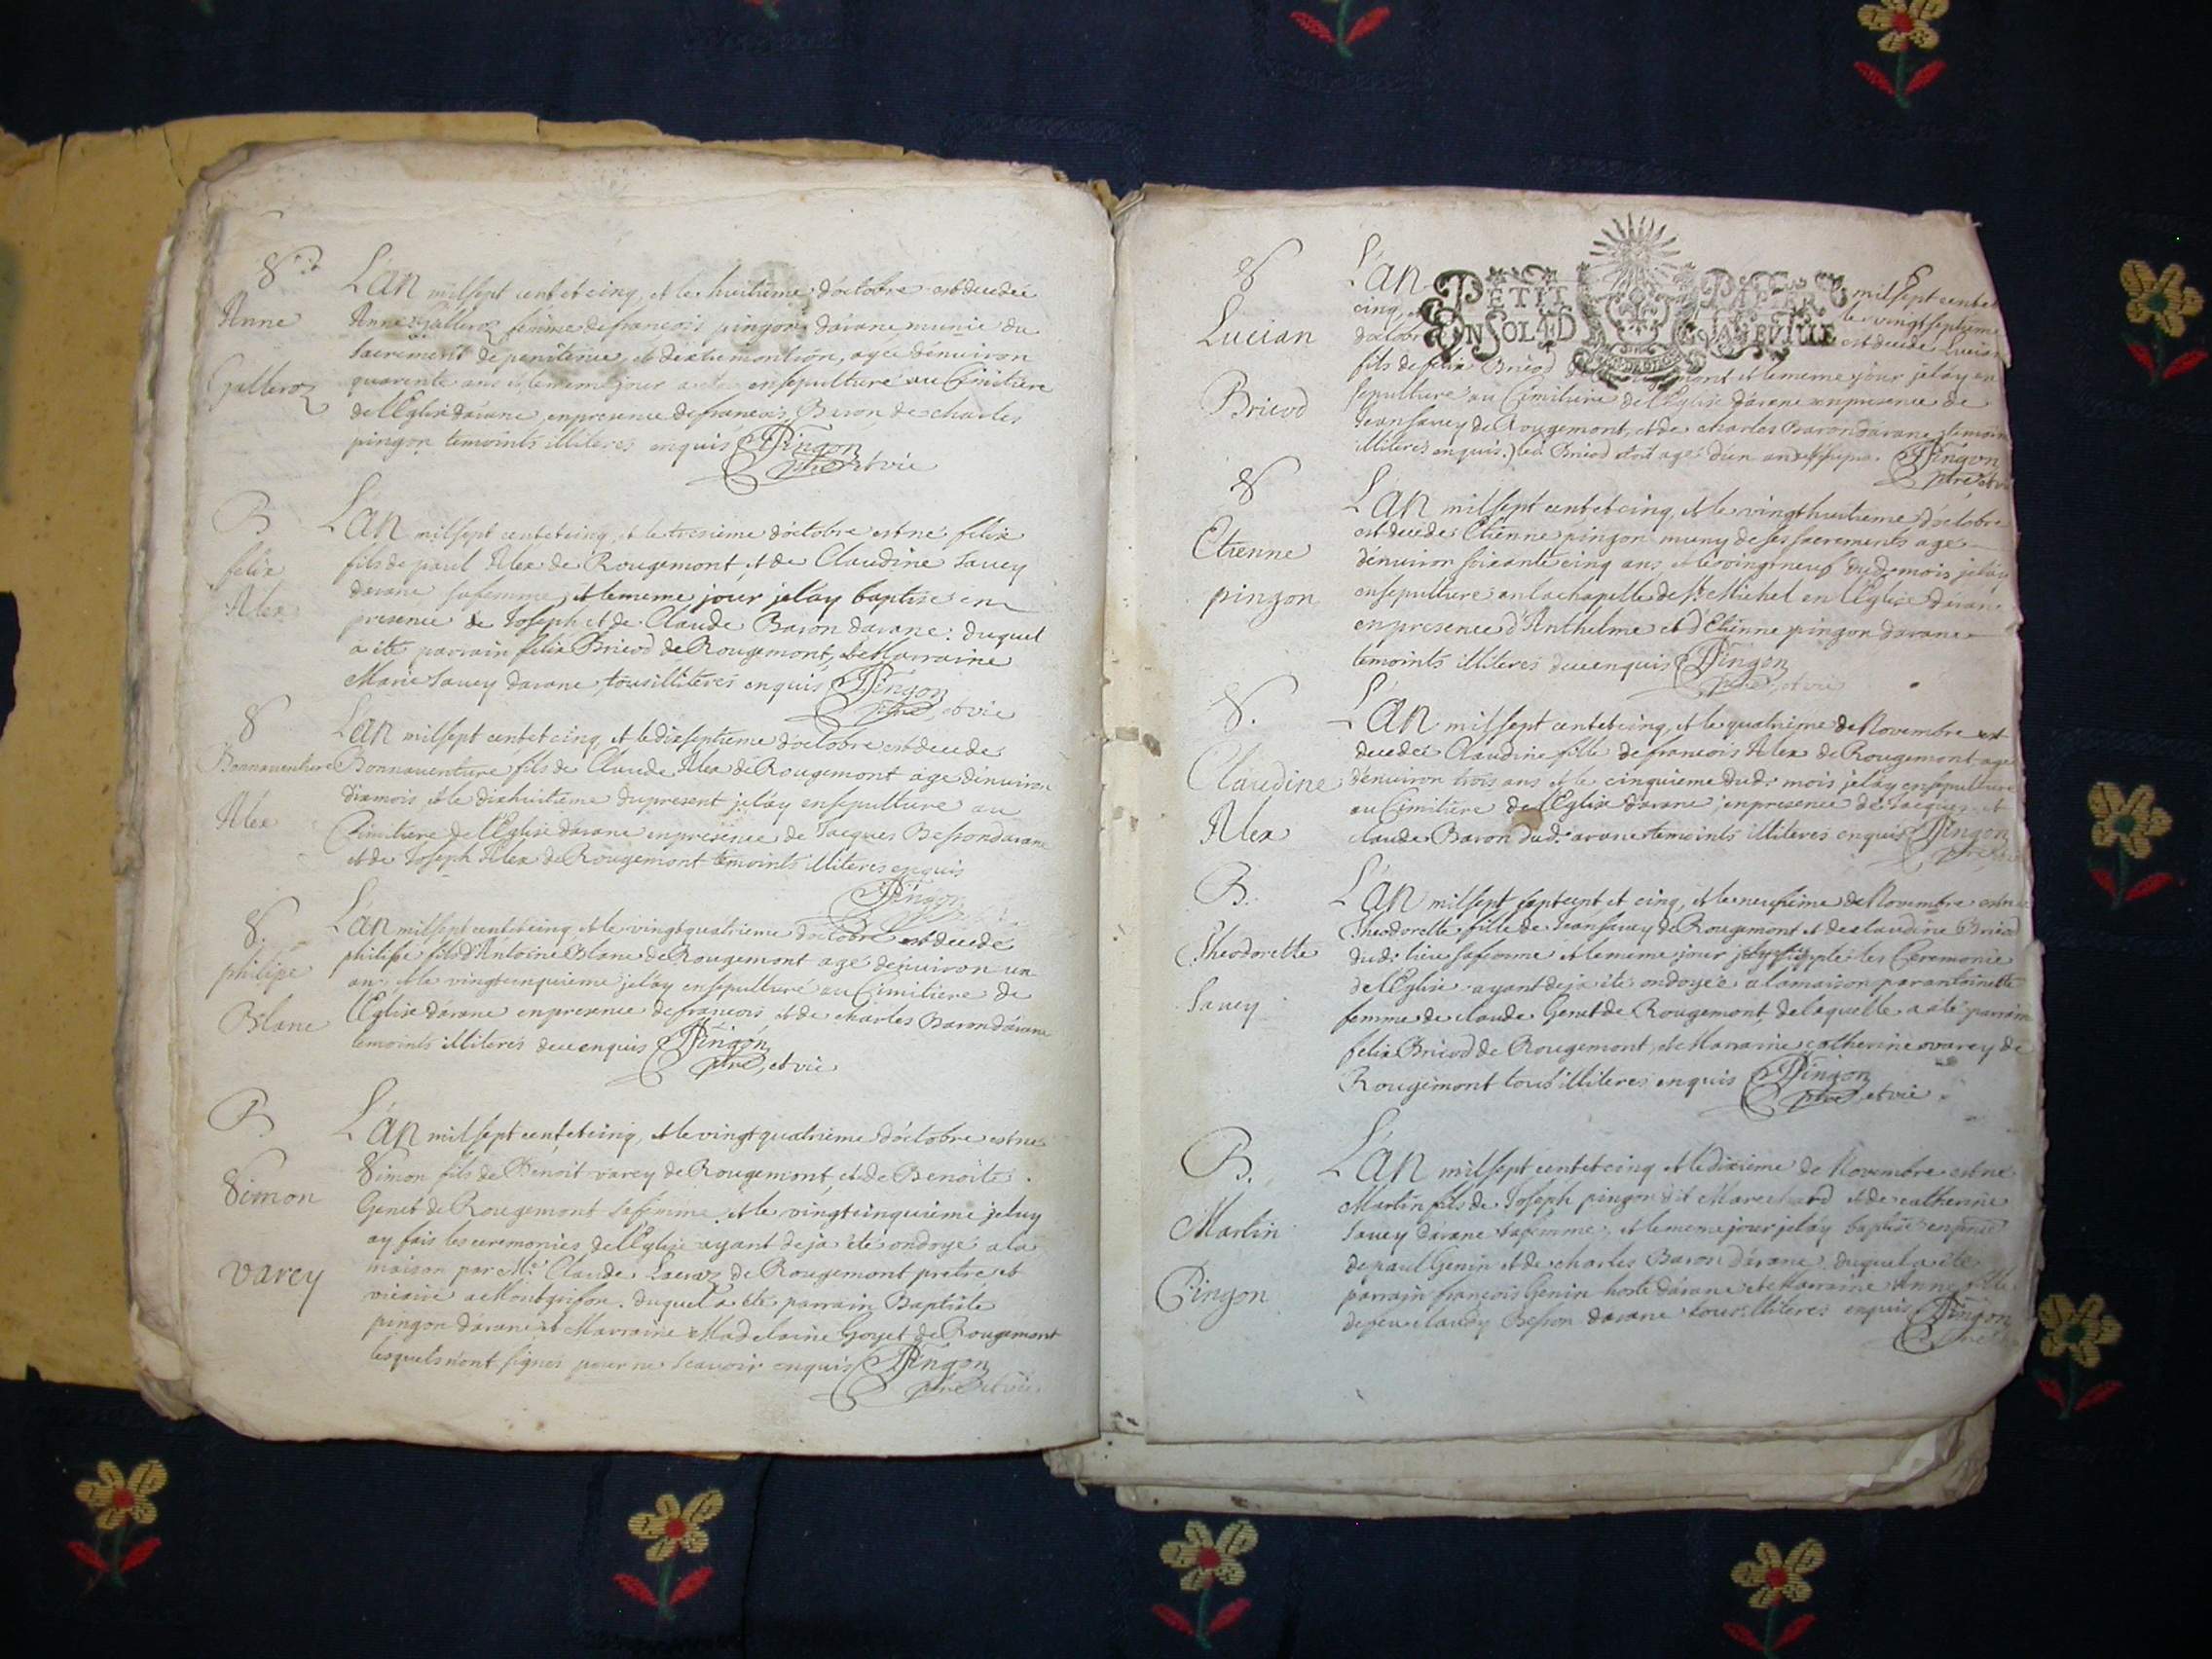 S.
Anne
Galleroz
L'an mil sept cent et cinq, et le huitieme d'octobre est decedée
Anne Galleroz femme de francois pingon d'arane munie du
sacrement de penitence, et d'extremontion, agée d'environ
quarente ans et le meme jour a eté ensepulturé au Cimitiere
de l'Eglise d'arane, en presence de francois Baron, de charles
pingon temoints illiteres enquis Pingon
ptre et vic
B
felix
Alex
L'an mil sept cent et cinq, et le tresieme d'octobre est né felix
fils de paul Alex de Rougemont, et de Claudine Savey
darane sa femme, et le meme jour je l'ay baptisé en
presence de Joseph et de Claude Baron darane: duquel
a ité parrain felix Bricod de Rougemont, et Marraine
Marie Savey darane, tous illiteres enquis Pingon
ptre, et vic
S
Bonnaventure
Alex
L'an mil sept cent et cinq, et le dixseptieme d'octobre est decedé
Bonnaventure fils de Claude Alex de Rougemont agé d'environ
dix mois et le dixhuitieme du present je l'ay ensepulturé au
Cimitiere de l'Eglise d'arane en presence de Jacques Besson darane
et de Joseph Alex de Rougemont temoints illiteres enquis
Pingon
S.
philipe
Blanc
L'an mil sept cent et cinq, et le vingt quatrieme d'octobre est decedé
philipe fils d'Antoine Blanc de Rougemont agé d'environ un
an, et le vingt cinquieme je l'ay ensepulturé au Cimitiere de
l'Eglise d'arane en presence de francois et de charles Baron d'arane
temoints illiteres deue enquis Pingon
ptre, et vic
B
Simon
Varcy
L'an mil sept cent et cinq, et le vingt quatrieme d'octobre est né
Simon fils de Benoit varcy de Rougemont, et de Benoite
Genet de Rougemont sa femme, et le vingt cinquieme je luy
ay fais les ceremonies de l'Eglise ayant deja été ondoyé a la
maison par Mre Claude Lacraz de Rougemont pretre et
vicaire a Montgrifon. duquel a été parrain Baptiste
pingon darane et Marraine Madelaine Goyet de Rougemont
lesquels n'ont signés pour ne scavoir enquis Pingon
ptre et vic
PETIT PAPIER
EN SOL ED
S
Lucian
Bricod
L'an mil sept cent et
cinq, et le vingt septieme
d'octobre est decedé Lucian
fils de felix Bricod de Rougemont et le meme jour je l'ay en
sepulturé au Cimitiere de l'Eglise d'arane en presence de
Jean Savey de Rougemont, et de charles Baron d'arane temoin
illiteres enquis.) led. Bricod etoit agé d'un an Pingon
ptre et vic
S
Etienne
pingon
L'an mil sept cent et cinq, et le vingt huitieme d'octobre
est decedé Etienne pingon muny de ses sacrements agé
d'environ soixante cinq ans et le vingt neuf dud. mois je l'ay
ensepulturé en la chapelle de St Michel en l'Eglise d'arane
en presence d'Anthelme et d'Etienne pingon darane
temoints illiteres deue enquis Pingon
ptre, et vic
S.
Claudine
Alex
L'an mil sept cent et cinq, et le quatrieme de Novembre est
decedée Claudine fille de francois Alex de Rougemont agé
d'environ trois ans et le cinquieme dud. mois je l'ay ensepulturé
au Cimitiere de l'Eglise d'arane, en presence de Jacques et
claude Baron dud. arane temoints illiteres enquis Pingon
ptre
B.
Theodorette
Savey
L'an mil sept cent, et cinq, et le neufieme de Novembre est née
Theodorette fille de Jean Savey de Rougemont et de claudine Bricod
dud. lieu sa femme et le meme jour j'ay les Ceremonie
de l'Eglise ayant deja ité ondoyée a la maison par antoinette
femme de claude Genet de Rougemont, de laquelle a eté parrain
felix Bricod de Rougemont, et Marraine catherine varcy de
Rougemont tous illiteres enquis Pingon
ptre, et vic
B.
Martin
Pingon
L'an mil sept cent et cinq et le dixieme de Novembre est né
Martin fils de Joseph pingon dit Marechard et de catherine
Savey d'arane sa femme, et le meme jour je l'ay baptisé en pnce
de paul Genin et de charles Baron d'arane. duquel a eté
parrain francois Genin hoste d'arane et Marraine Anne fille
de feu claudy Besson darane tous illiteres enquis Pingon
ptre